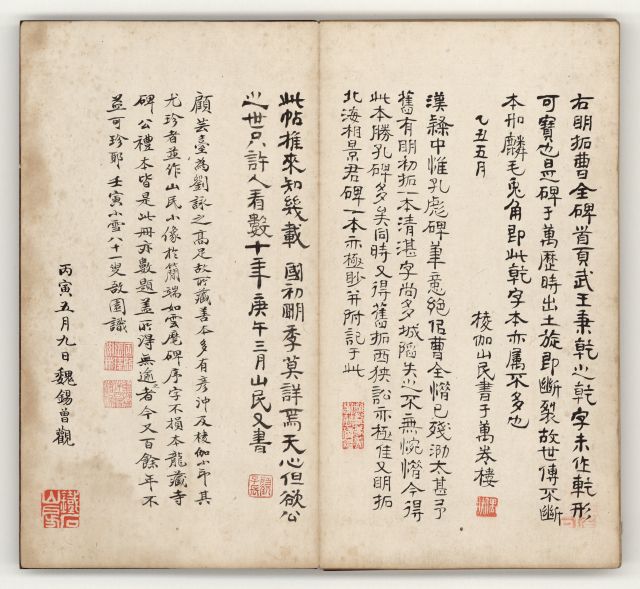 右明拓曹全碑首頁武王秉乾之乾字未作軋形
可寶也是碑于萬歷時出土旋即斷裂故世傳不斷
本如麟毛兔角即此乾字本亦屬不多也
乙丑五月
棱伽山民書于萬卷樓
漢隸中惟孔彪碑筆意絕侶曹全惜已殘泐太甚予
舊有明初拓一本清湛字尚多城陷失之不無惋惜今得
此本勝孔碑多矣同時又得舊拓西狹訟亦極佳又明拓
北海相景君碑一本亦極眇并附記于此
此帖推來知幾載 國初朙季莫詳焉天心但欲公
之世只許人看數十年庚午三月山民又書
顧芸臺為劉詠之高足故所藏善本多有彥沖及棱伽小印其
尤珍者並作山民小像於簡端如雲麾碑序字不損本龍藏寺
碑公禮本皆是此冊亦數題蓋所得無逾者今又百餘年不
益可珍耶壬寅小雪八十一叟故園識
丙寅五月九日魏錫曾觀